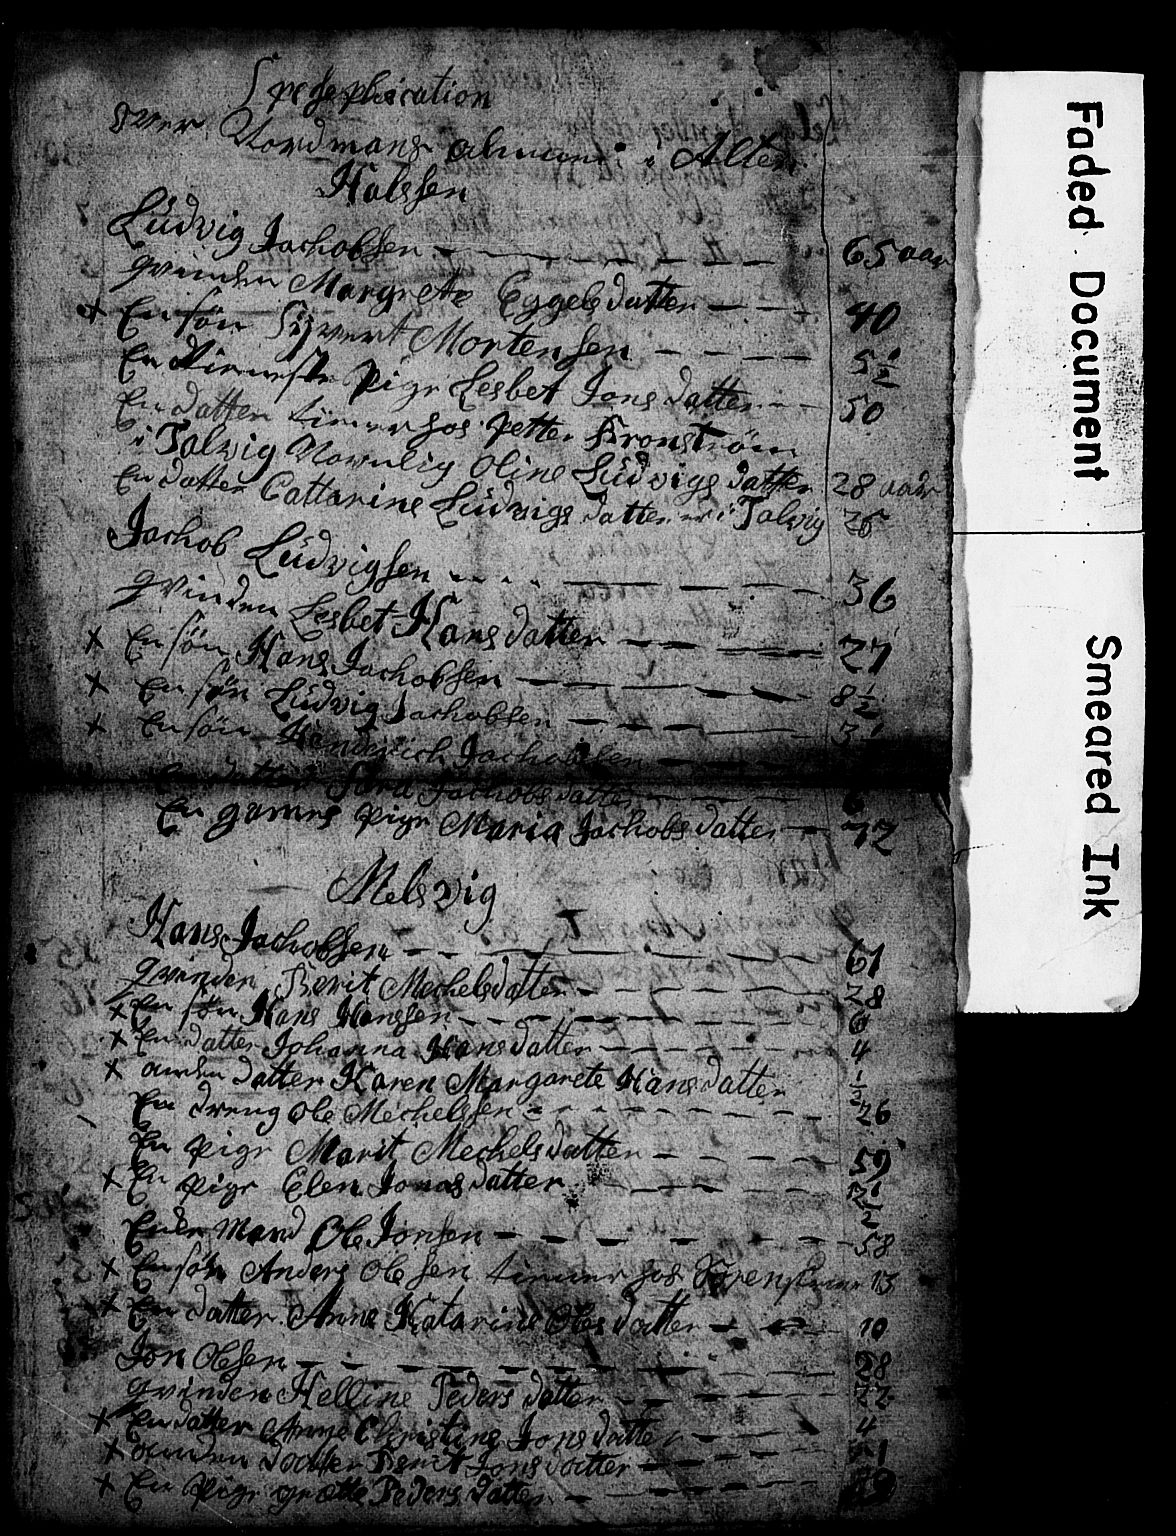 Spesephication
over Nordmans almuen i Alten
Halssen
Lüdvig Jachobsen - - - 65 aar
qvinden Margrete Eggelsdatter - - - 40
x En søn Syvert Mortensen - - - 5½
En tieneste Pige Lesbet Jons datter - - 50
En datter tiener hos Petter Kronstrøm
i Talvig Navnlig Oline Lüdvigs datter 28 aar
En datter Cattarine Lüdvigs datter er i Talvig 26
Jachob Lüdvigsen - - - 36
qvinden Lesbet Hans datter - - - 27
x En søn Hans Jachobsen - - - 8½
x En søn Lüdvig Jachobsen - - - 3
x En søn Henderich Jachobsen - - -
En datter Sara Jachobs datter - - - 6
En gammel Pige Maria Jachobs datter - 72
Melsvig
Hans Jachobsen - - - 61
qvinden Berit Mechelsdatter - - - 28
x En søn Hans Hanssen - - - 6
x En datter Johanna Hans datter - - - 4
x anden datter Karen Margarete Hans datter ½
En dreng Ole Mechelssen - - - 26
En Pige Marit Mechels datter - - - 59
x En Pige Elen Jonas datter - - -
Ender Mand Ole Jonsen - - - 58
x En søn Anders Olesen tiener hos 13
x En datter Anne Katarine Oles datter - - 10
Jon Olsen - - - 28
qvinden Helline Peders datter - - - 22
x En datter Anne Christine Jons datter - - - 4
x anden datter Berit Jons datter - - - 1
x En Pige grette Peders datter - - -
Faded Document
Smeared Ink